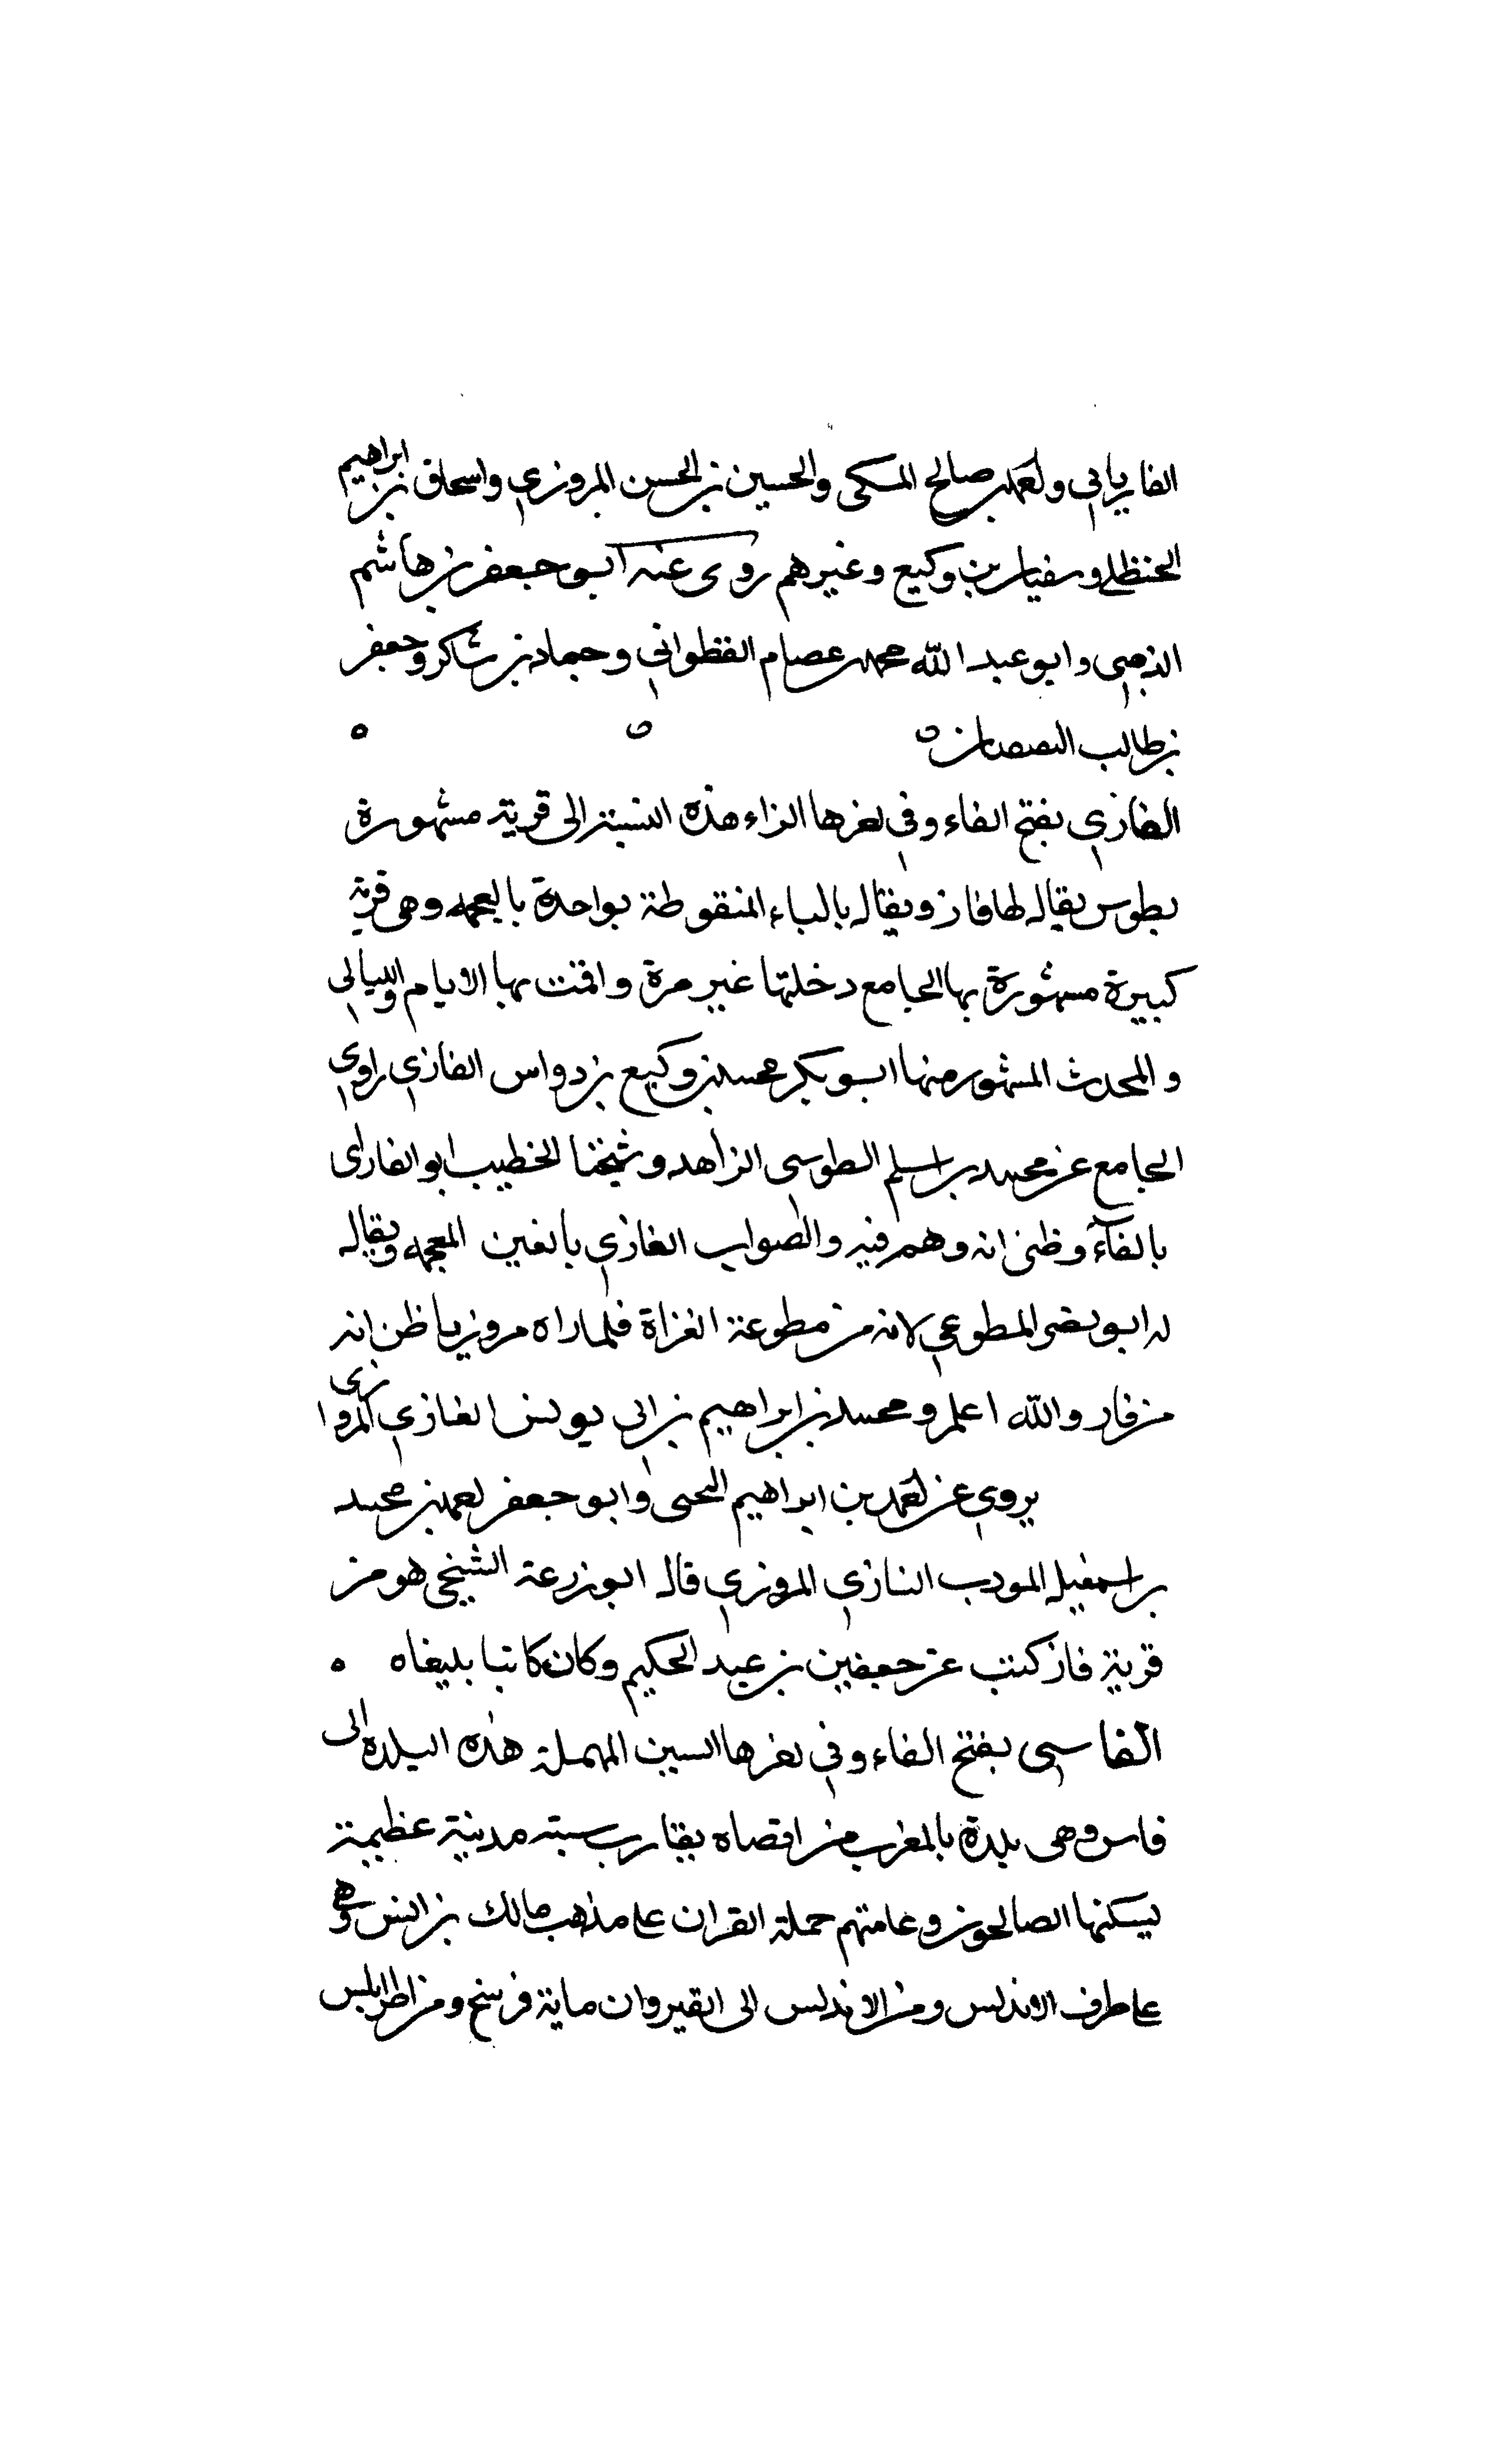 الفاريابي واحمد بن صالح المكي والحسين بن الحسن المروزي واسحاق بن ابراهيم
الحنظلي وسفيان بن وكيع وغيرهم روى عنه ابو جعفر بن هاشم
وابو عبد الله محمد بن عصام القطواني وحماد بن شاكر وجعفر
بن طالب
الفازي بفتح الفاء وفي اخرها الزاء هذه النسبة الى قرية مشهورة
بطوس يقال لها فاز ويقال بالباء المنقوطة بواحدة بالعجمه وهي قرية
كبيرة مشهورة بها الجامع دخلتها غير مرة واقمت بها الايام والليالي
والمحدث المشهور منها ابو بكر محمد بن وكيع بن دواس الفازي راوي
الجامع عن محمد بن اسلم الطوسي الزاهد وشيخنا الخطيب ابو
بالفاء وظني انه وهم فيه والصواب الغازي بالغين المعجمه ويقال
له ابو نصر المطوعي لانه من مطوعة الغزاة فلما راه مروزيا ظن انه
من فاز والله اعلم ومحمد بن ابراهيم بن ابي يونس الفازي المروزي
يروي عن احمد بن ابراهيم وابو جعفر احمد بن محمد
بن اسمعيل المودب الفازي المروزي قال ابو زرعة السنجي هو من
قرية فاز كتب عن بن عبد الحكيم وكان كاتبا بليغاه
الفاسي بفتح الفاء وفي اخرها السين المهملة هذه البلدة الى
فاس وهي بلدة بالمغرب من اقصاه يقارب سبته مدينة عظيمة
يسكنها الصالحون وعامتهم حملة القران على مذهب مالك بن انس وهي
على طرف الاندلس ومن الاندلس الى القيروان ماية فرسخ ومن اطرابلس